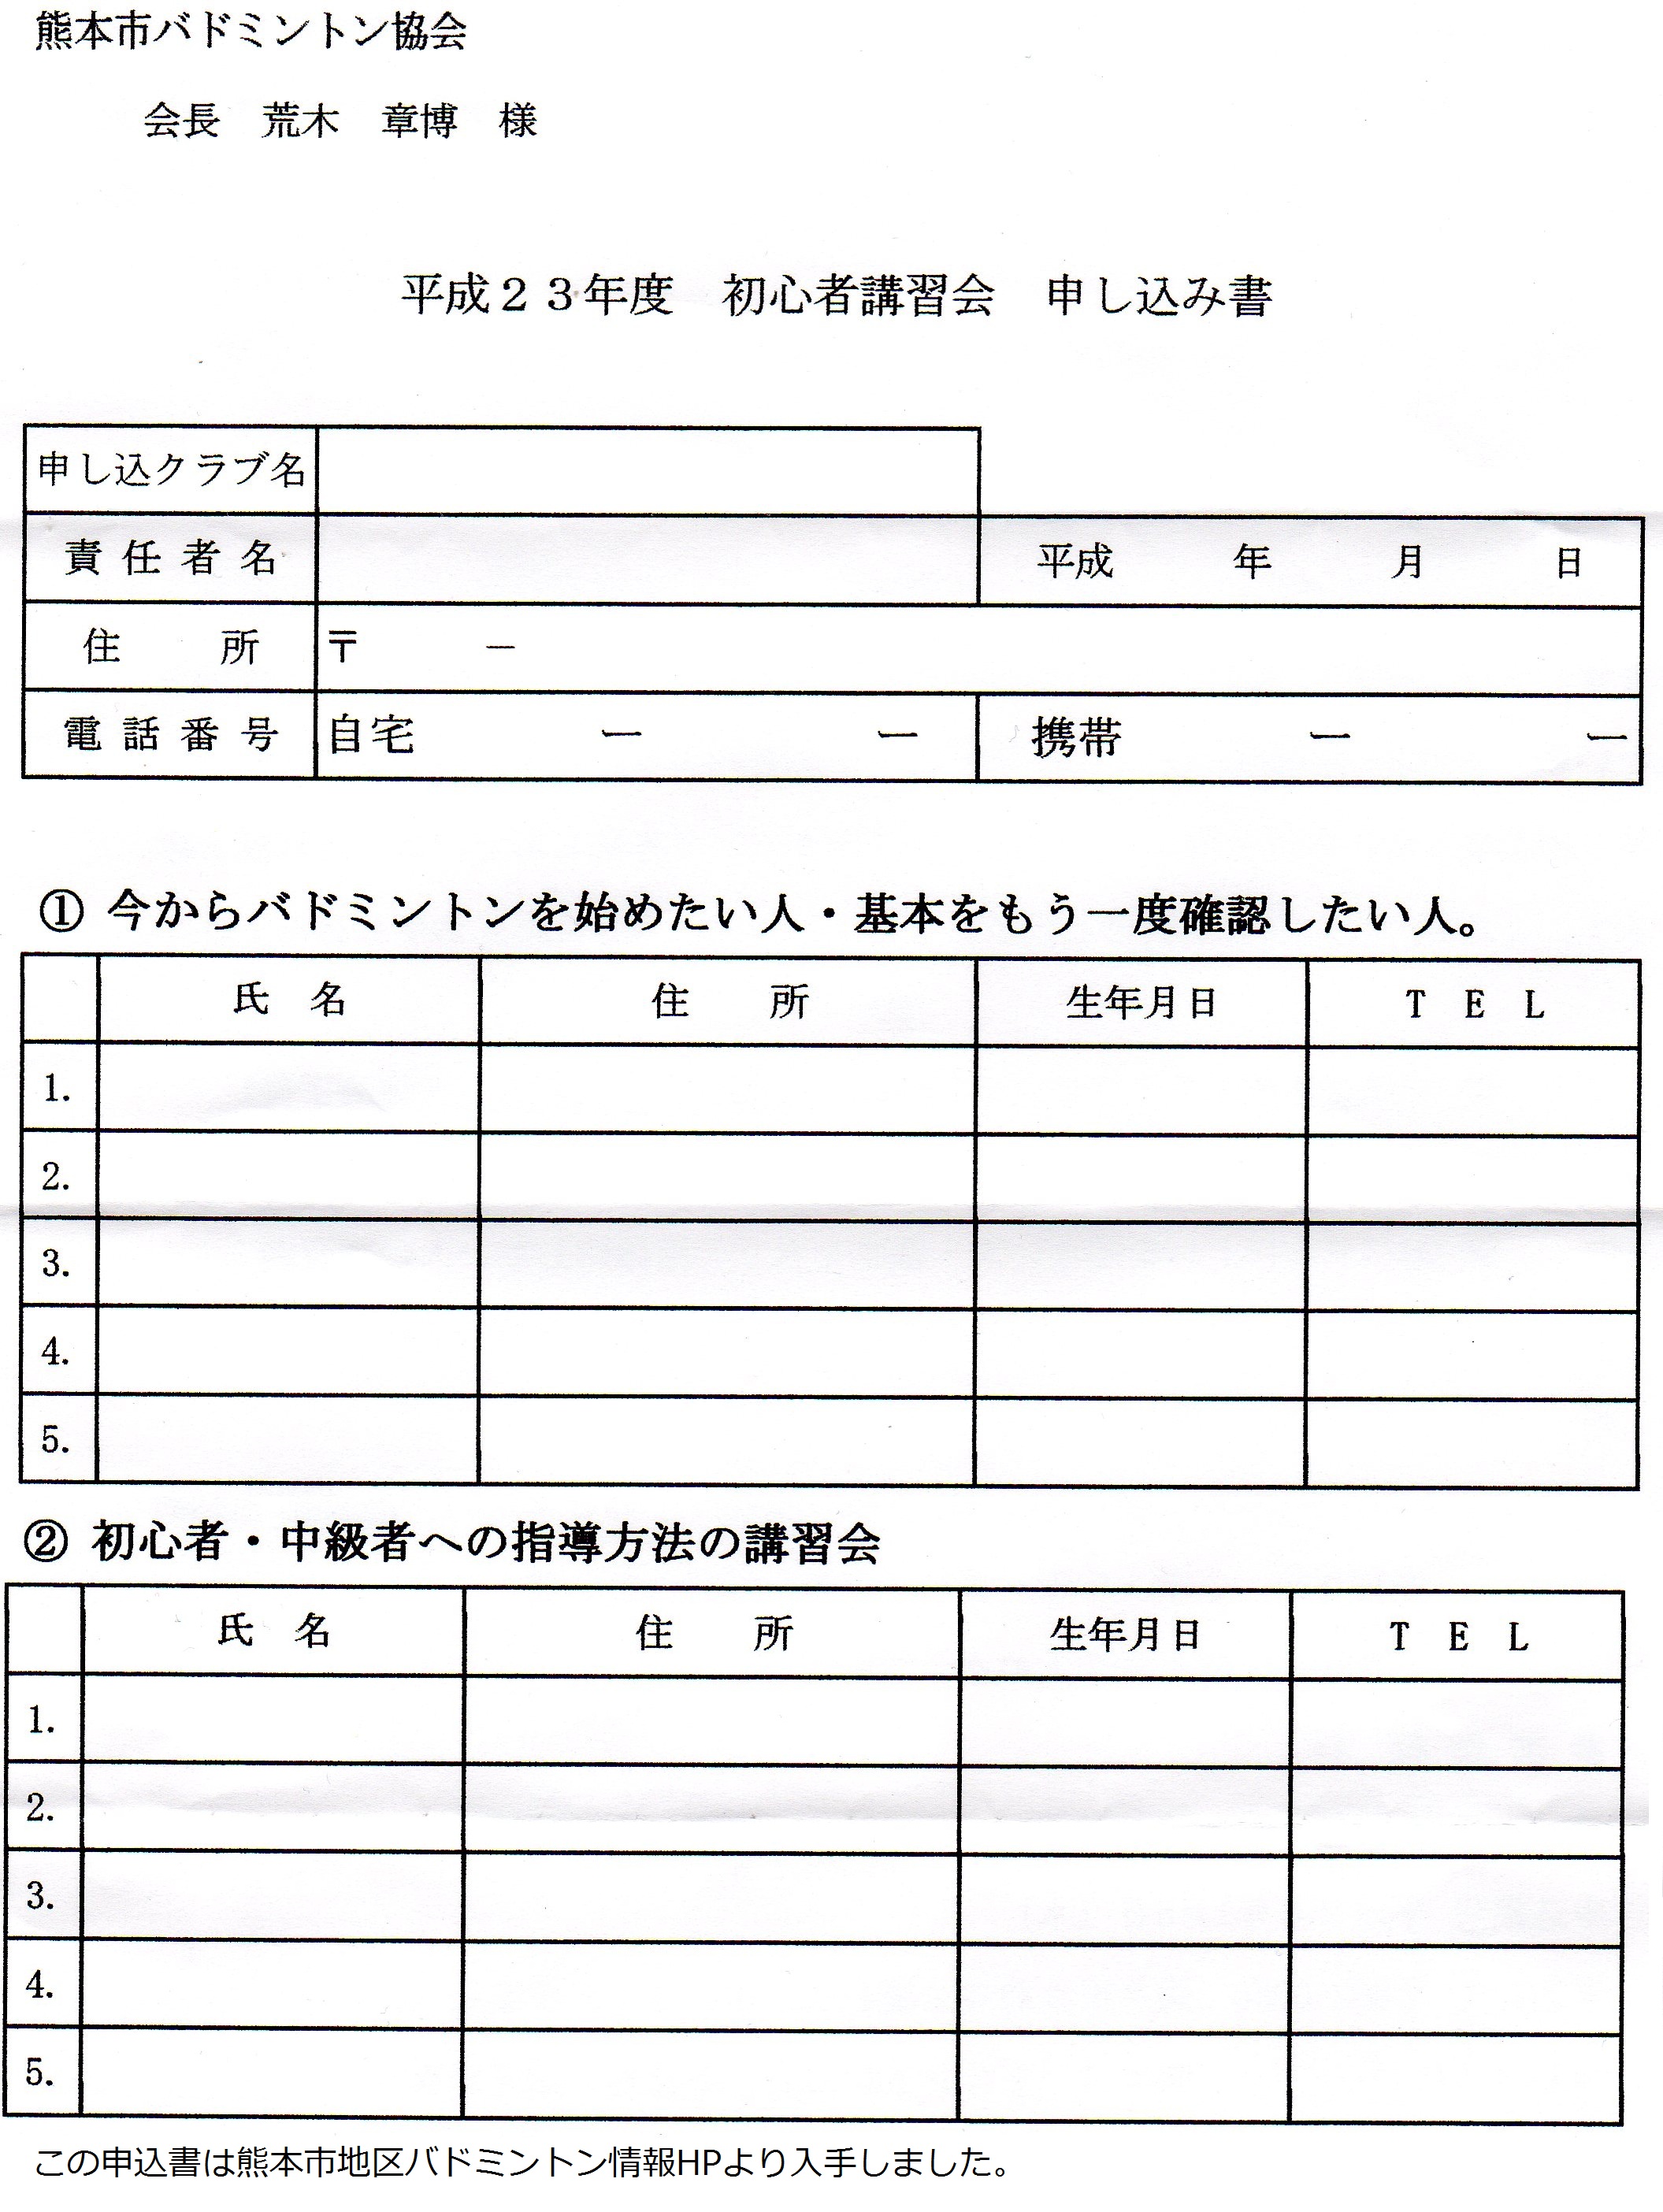 熊本市バドミントン協会
会長　荒木　章博　様
平成２３年度　初心者講習会　申し込み書
申し込クラブ名
責 任 者 名　平成　年　月　日
住　所　〒　－
電 話 番 号　自宅　ー　ー　携帯　ー　ー
① 今からバドミントンを始めたい人・基本をもう一度確認したい人。
氏　名　住　所　生年月日　T E L
1.
2.
3.
4.
5.
② 初心者・中級者への指導方法の講習会
氏　名　住　所　生年月日　T E L
1.
2.
3.
4.
5.
この申込書は熊本市地区バドミントン情報HPより入手しました。